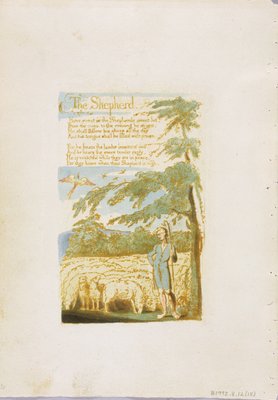 The Shepherd.
How sweet is the Shepherds sweet lot,
From the morn to the evening he strays:
He shall follow his sheep all the day
And his tongue shall be filled with praise.
For he hears the lambs innocent call,
And he hears the ewes tender reply,
He is watchful while they are in peace,
For they know when their Shepherd is nigh.
B1992.8.12(18)